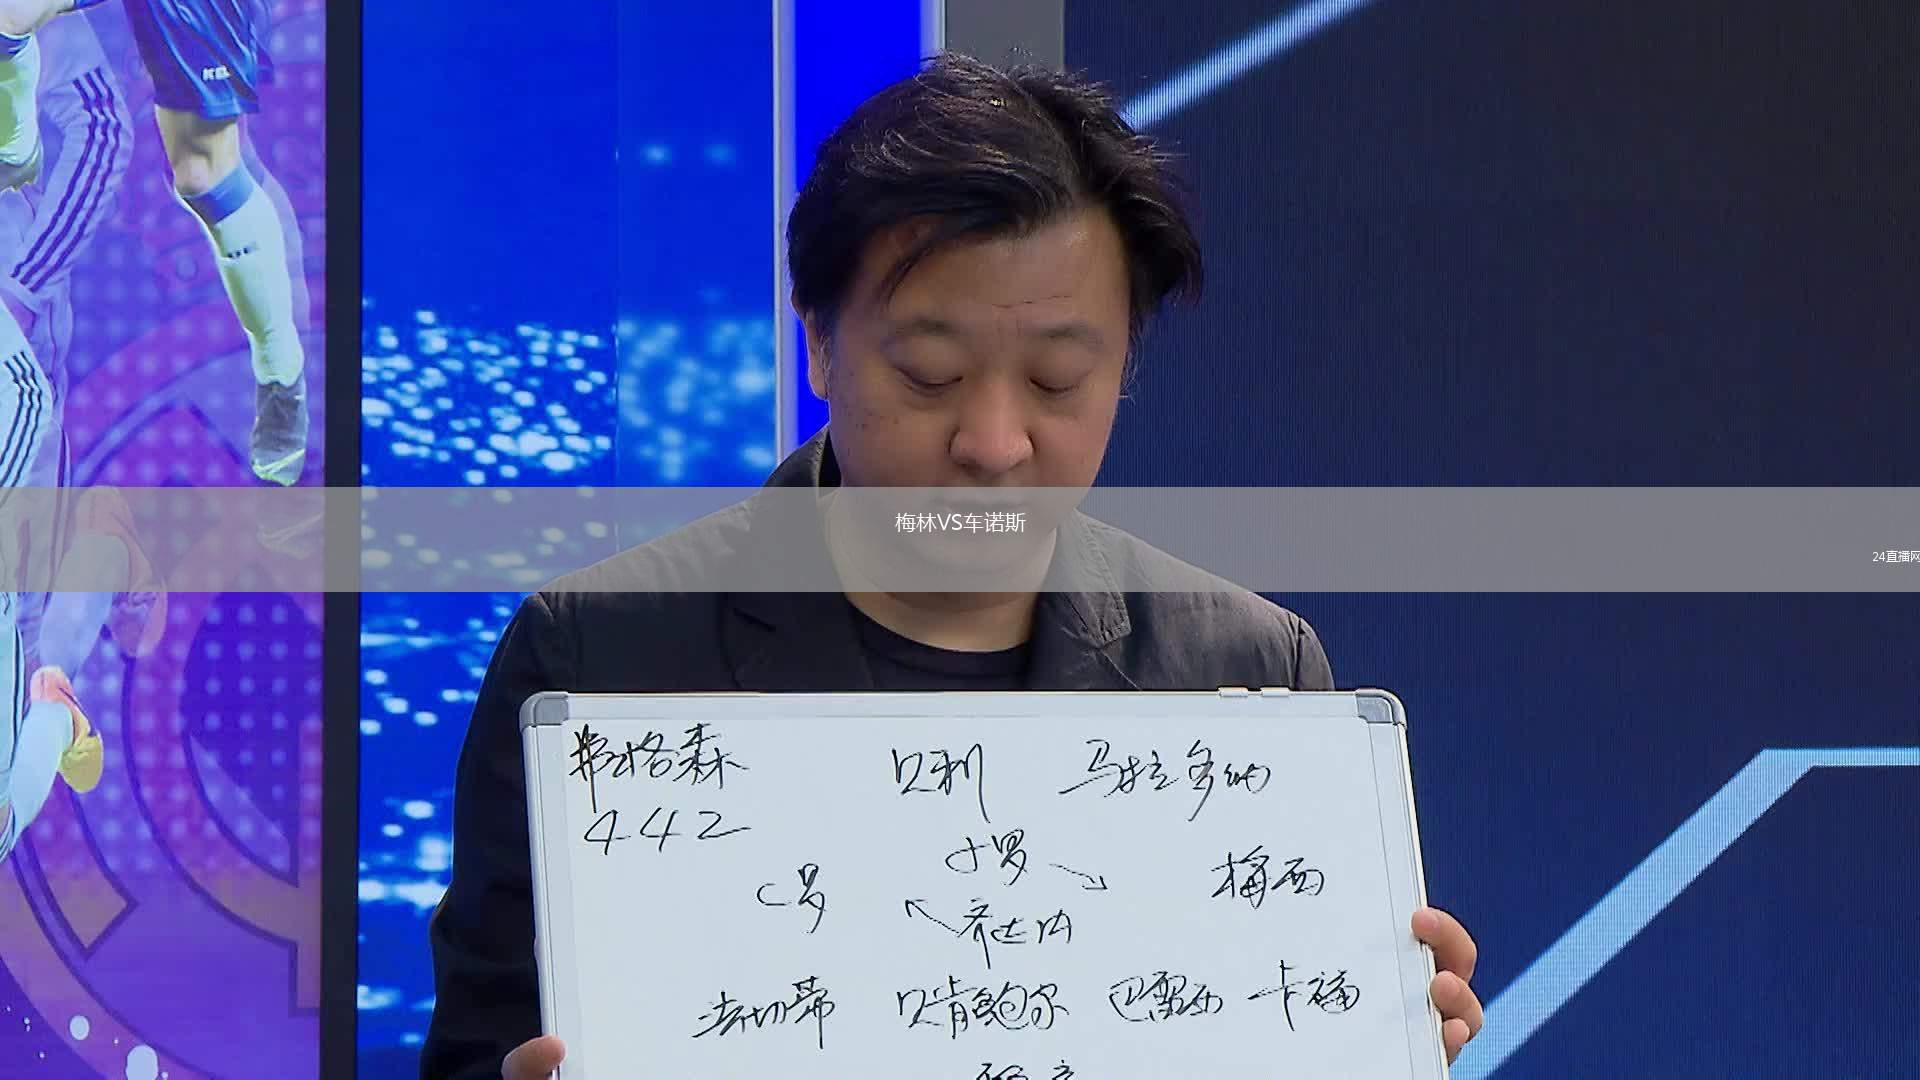 梅林VS车诺斯
24直播网
弗格森 贝利 马拉多纳
442
小罗
C罗 梅西
齐达内
法切蒂 贝肯鲍尔 巴雷西 卡福